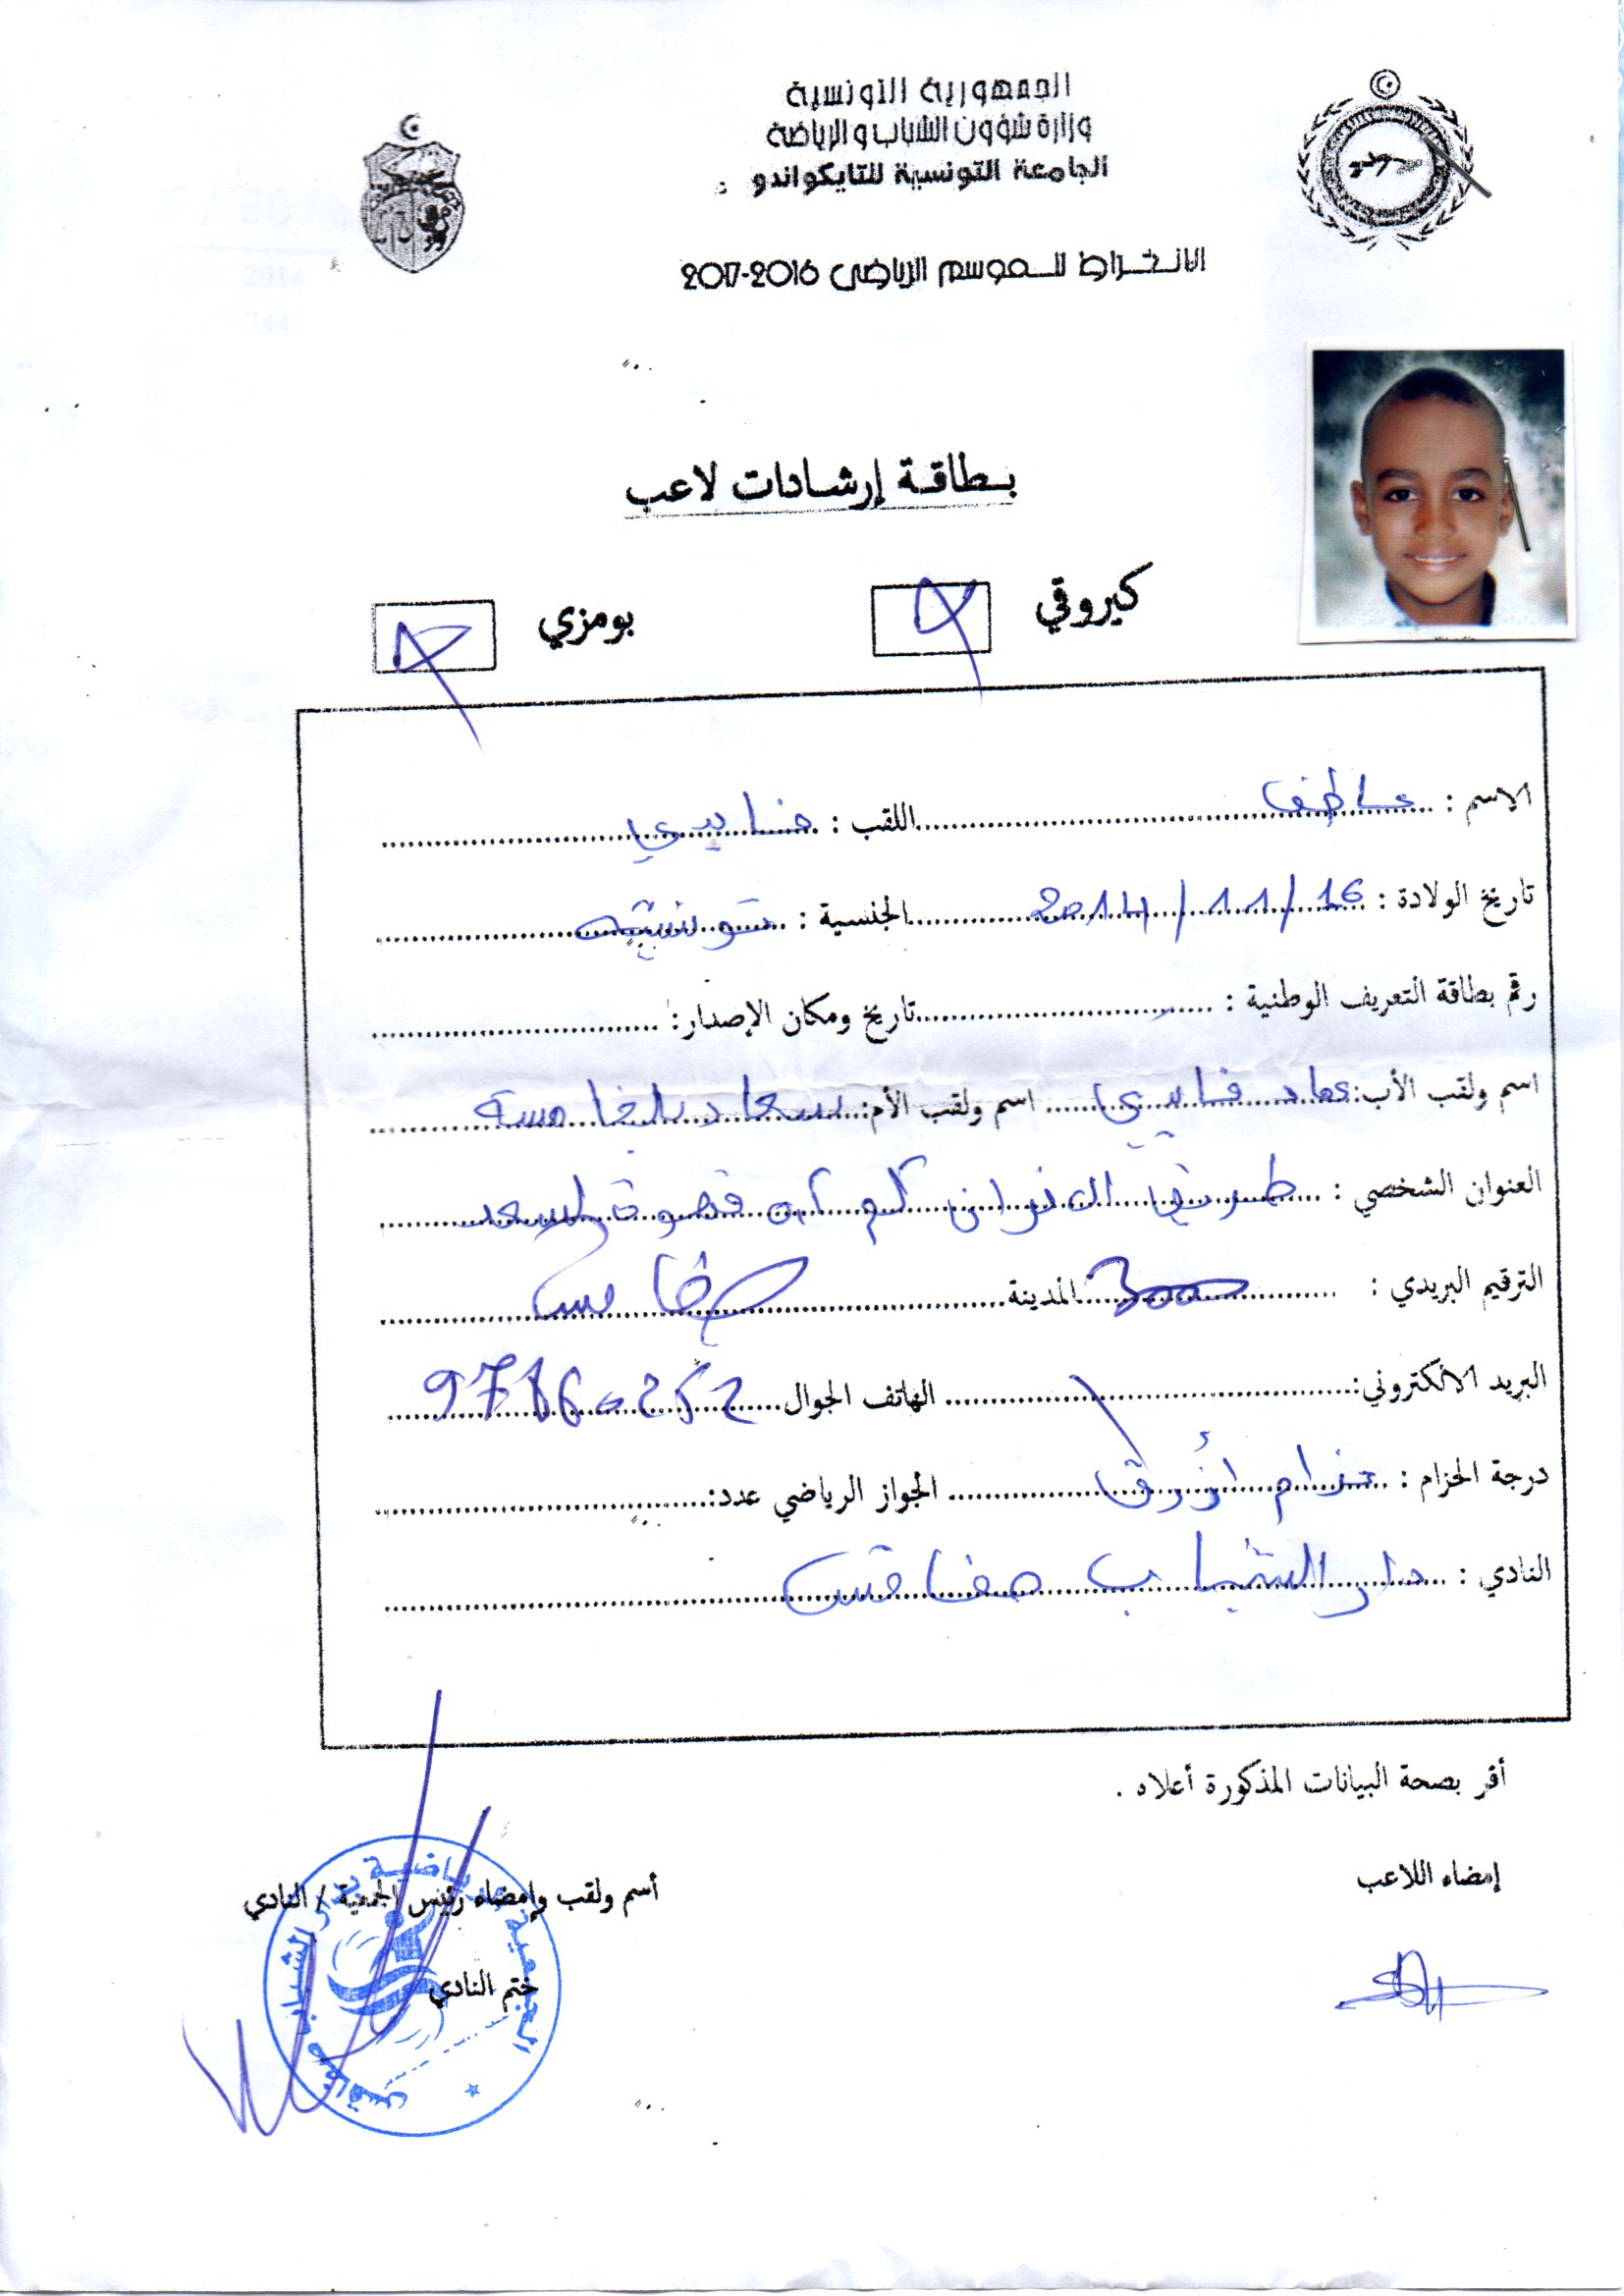 الجمهورية التونسية
وزارة شؤون الشباب والرياضة
الجامعة التونسية للتايكواندو
الانخراط للموسم الرياضي 2016-2017
بطاقة إرشادات لاعب
كيروقي بومزي
الاسم : عاطف اللقب :
تاريخ الولادة : 16/11/2014 الجنسية : تونسية
رقم بطاقة التعريف الوطنية : تاريخ ومكان الإصدار:
اسم ولقب الأب: عماد اسم ولقب الأم: سعاد
العنوان الشخصي : طريق كم
الترقيم البريدي : 3000 المدينة صفاقس
البريد الالكتروني: الهاتف الجوال
درجة الحزام : حزام أزرق الجواز الرياضي عدد:
النادي : دار الشباب صفاقس
أقر بصحة البيانات المذكورة أعلاه .
إمضاء اللاعب
أسم ولقب وإمضاء رئيس الجمعية / النادي
ختم النادي
الجمعية الرياضية بدار الشباب صفاقس